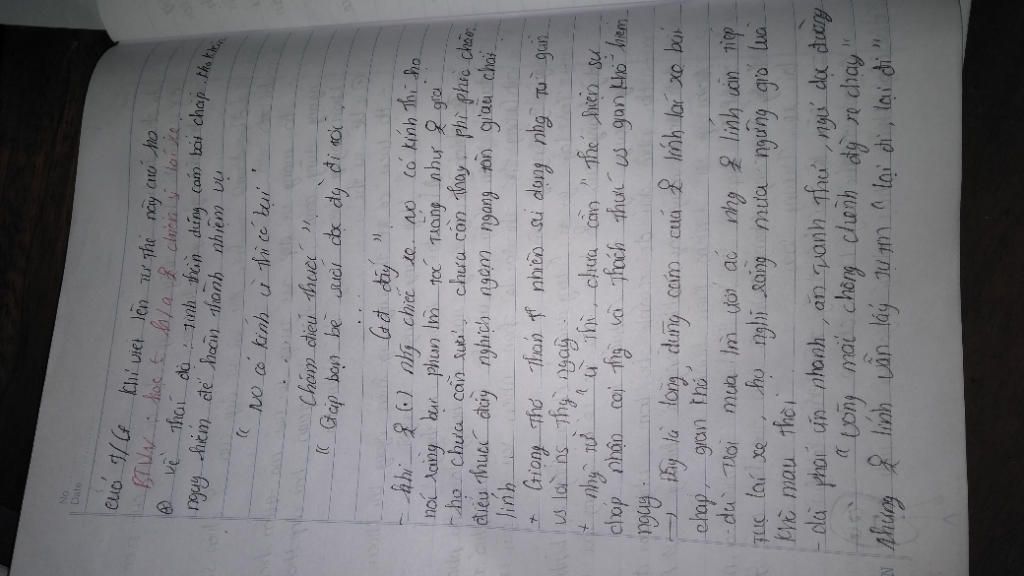 No.
Date
của t/g khi viết lên tư thế này của họ
BTVN: học t
⊕ về thái độ: tinh thần dũng cảm bất chấp khó khăn
nguy hiểm để hoàn thành nhiệm vụ
" Ko có kính ừ thì có bụi "
...
Châm điếu thuốc "
" Gặp bạn bè suốt dọc đg đi tới
...
Cơ đấy "
- khi những chiếc xe ko có kính thì họ
nói rằng bụi phun lên tóc trắng như g già
- họ chưa cần rửa, chưa cần thay, phì phèo châm
điếu thuốc đầy nghịch ngợm ngang tàn giàu chất
lính
+ Giọng thơ thản nhiên sử dụng ngữ gần gũi
vs lời ns thg ngày
+ những từ " ừ thì, chưa cần " thể hiện sự
chấp nhận coi thg và thách thức vs gian khổ hiểm
nguy.
→ Đây là lòng dũng cảm của lính lái xe bất
chấp, gian khổ,
- dù trời mưa lớn gió ác những lính vẫn tiếp
tục lái xe, họ nghĩ rằng mưa ngừng gió lùa
khô mau thôi
- dù phải ăn nhanh, ăn tranh thủ, ngủ dọc đường
" võng mắc chông chênh đg xe chạy "
Những lính vẫn lấy tự tin " lại đi, lại đi "